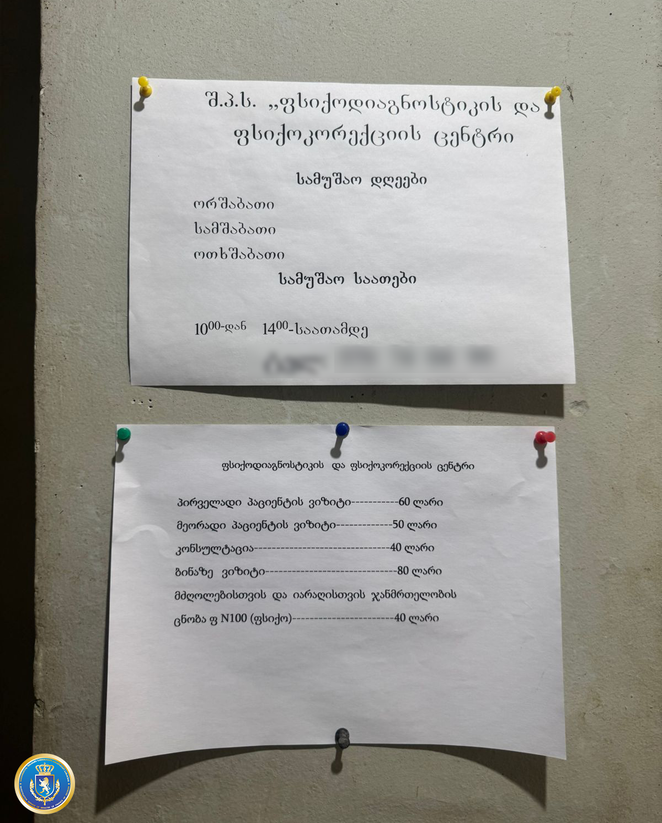 შ.პ.ს. „ფსიქოდიაგნოსტიკის და
ფსიქოკორექციის ცენტრი
სამუშაო დღეები
ორშაბათი
სამშაბათი
ოთხშაბათი
სამუშაო საათები
10⁰⁰-დან 14⁰⁰-საათამდე
ფსიქოდიაგნოსტიკის და ფსიქოკორექციის ცენტრი
პირველადი პაციენტის ვიზიტი-----------60 ლარი
მეორადი პაციენტის ვიზიტი-------------50 ლარი
კონსულტაცია-------------------------------40 ლარი
ბინაზე ვიზიტი------------------------------80 ლარი
მძღოლებისთვის და იარაღისთვის ჯანმრთელობის
ცნობა ფ N100 (ფსიქო)-----------------------40 ლარი